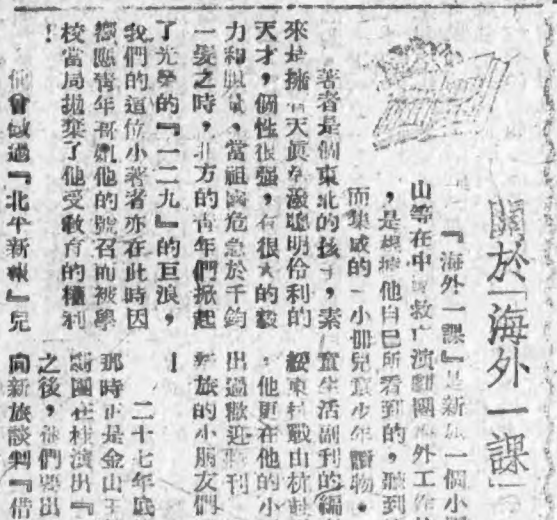 關於「海外一課」
『海外一課』是新旅一個小
山等在中國救亡演劇團海外工作
，是根據他自己所看到的，聽到
而集成的一小冊兒童少年讀物。
著者是個東北的孩子，素
來是擁有天真 激聰明伶利的
天才，個性很强，有很大的毅
力和 氣，當祖國危急於千鈞
一髮之時，北方的青年們掀起
了光榮的『一二九』的巨浪，
我們的這位小著者亦在此時因
響應青年哥 他的號召而被學
校當局拋棄了他受教育的權利
！
他曾做過『北平新報』兒
童生活副刊的編
綏東 戰由杭赴
。他更在他的小
出過歡迎特刊
新旅的小朋友們
！
二十七年底
那時正是金山王
劇團在桂演出『
之後，他們要出
向新旅談判『借